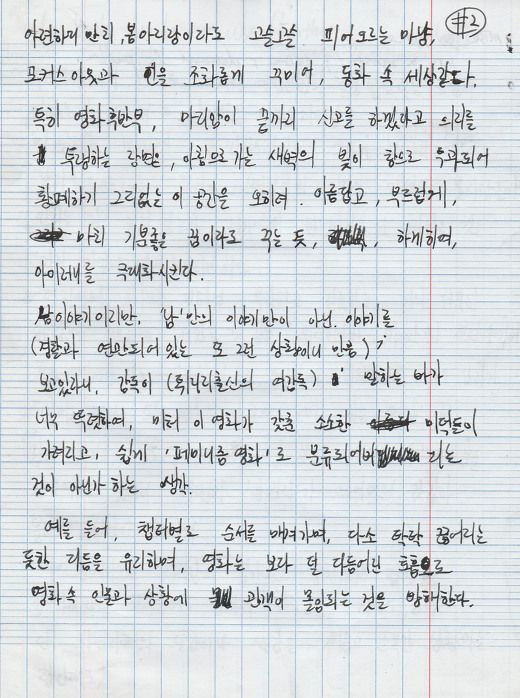 #2
아련하게 만히, 봄 아리랑이라도 고슬고슬 피어오르는 마냥,
포커스 아웃과 인을 조화롭게 꾸미어, 동화 속 세상같다.
특히 영화 후반부, 마리암이 끝까지 신고를 하겠다고 의지를
투영하는 장면은, 아침으로 가는 새벽의 빛이 창으로 투과되어
황폐하기 그지없는 이 공간을 오히려. 아름답고, 부드럽게,
마치 기분좋은 꿈이라도 꾸는 듯, 하게하여,
아이러니를 극대화시킨다.
남 이야기이지만, '남'만의 이야기만이 아닌. 이야기를
(경찰과 연관되어 있는 또 그런 상황이니 만큼)
보고있자니, 감독이 (튀니지출신의 여감독) 말하는 바가
너무 뚜렷하여, 마치 이 영화가 갖춘 소소한 미덕들이
가려지고, 쉽게 '페미니즘 영화'로 분류되어버 리는
것이 아닌가 하는 생각.
예를 들어, 챕터별로 순서를 매겨가며, 다소 탁탁 끊어지는
듯한 리듬을 유지하며, 영화는 보다 덜 다듬어진 호흡으로
영화 속 인물과 상황에 관객이 몰입되는 것을 방해한다.